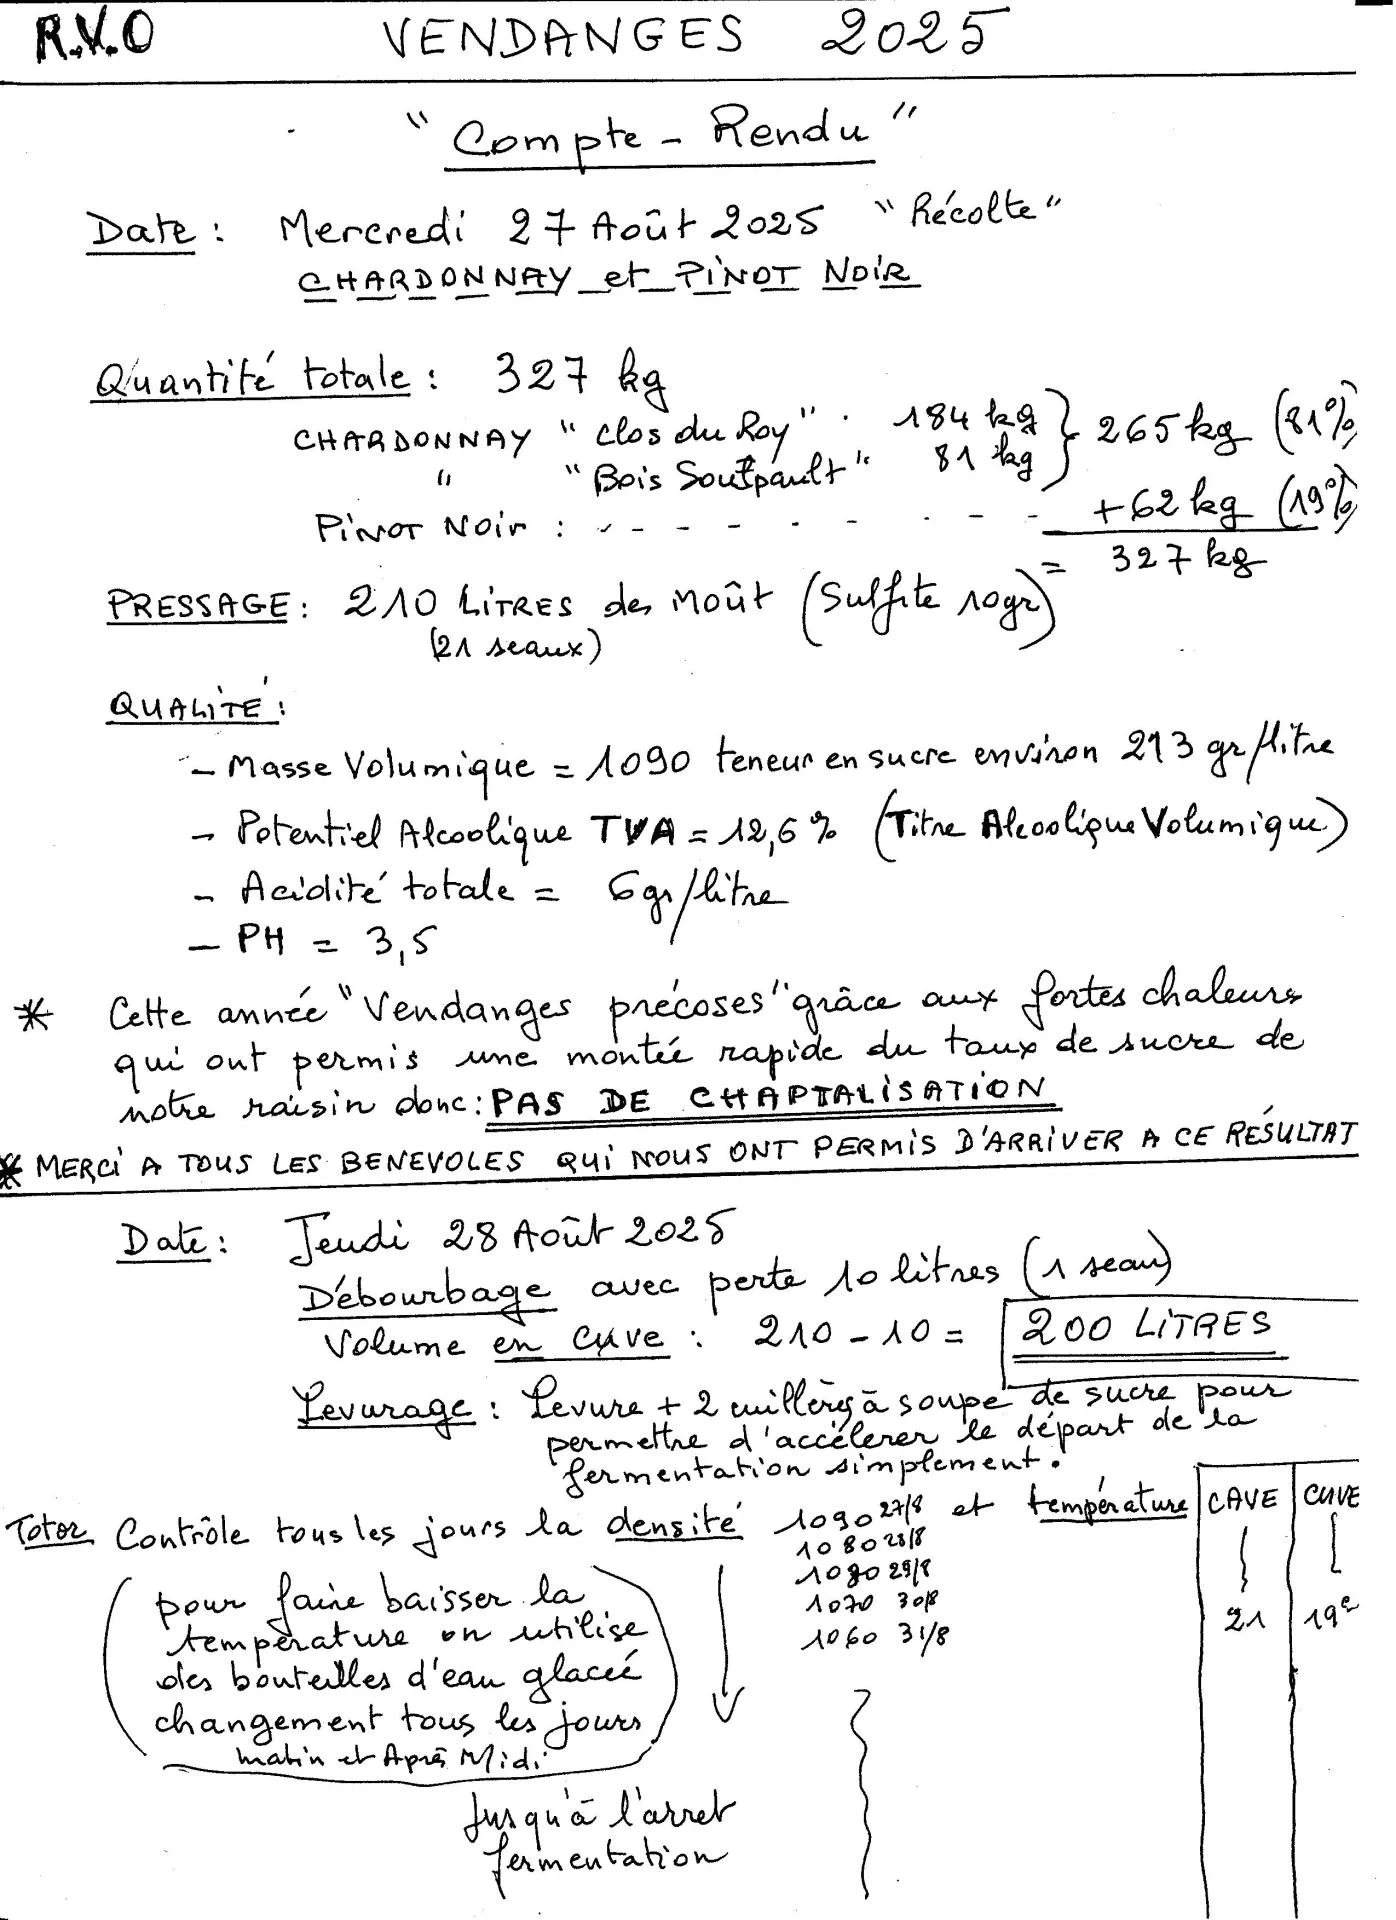 R.V.O VENDANGES 2025
" Compte - Rendu "
Date : Mercredi 27 Août 2025 " Récolte "
CHARDONNAY et PINOT NOIR
Quantité totale : 327 kg
CHARDONNAY " Clos du Roy " . 184 kg } 265 kg (81%)
" " Bois Soutpault " 81 kg
PINOT NOIR : - - - - - - - - - + 62 kg (19%)
= 327 kg
PRESSAGE : 210 LITRES de Moût (Sulfite 10gr)
(21 seaux)
QUALITÉ :
- Masse Volumique = 1090 teneur en sucre environ 213 gr/litre
- Potentiel Alcoolique TVA = 12,6 % (Titre Alcoolique Volumique)
- Acidité totale = 6gr/litre
- PH = 3,5
* Cette année "Vendanges précoses" grâce aux fortes chaleurs
qui ont permis une montée rapide du taux de sucre de
notre raisin donc : PAS DE CHAPTALISATION
* MERCI A TOUS LES BENEVOLES QUI NOUS ONT PERMIS D'ARRIVER A CE RÉSULTAT
Date : Jeudi 28 Août 2025
Débourbage avec perte 10 litres (1 seau)
Volume en cuve : 210 - 10 = 200 LITRES
Levurage : Levure + 2 cuillères à soupe de sucre pour
permettre d'accélerer le départ de la
fermentation simplement.
Totor Contrôle tous les jours la densité 1090 27/8 et température CAVE CUVE
1080 28/8
1080 29/8
1070 30/8
1060 31/8 21 19°
(pour faire baisser la
température on utilise
des bouteilles d'eau glacée
changement tous les jours
matin et Après Midi)
Jusqu'à l'arret
fermentation